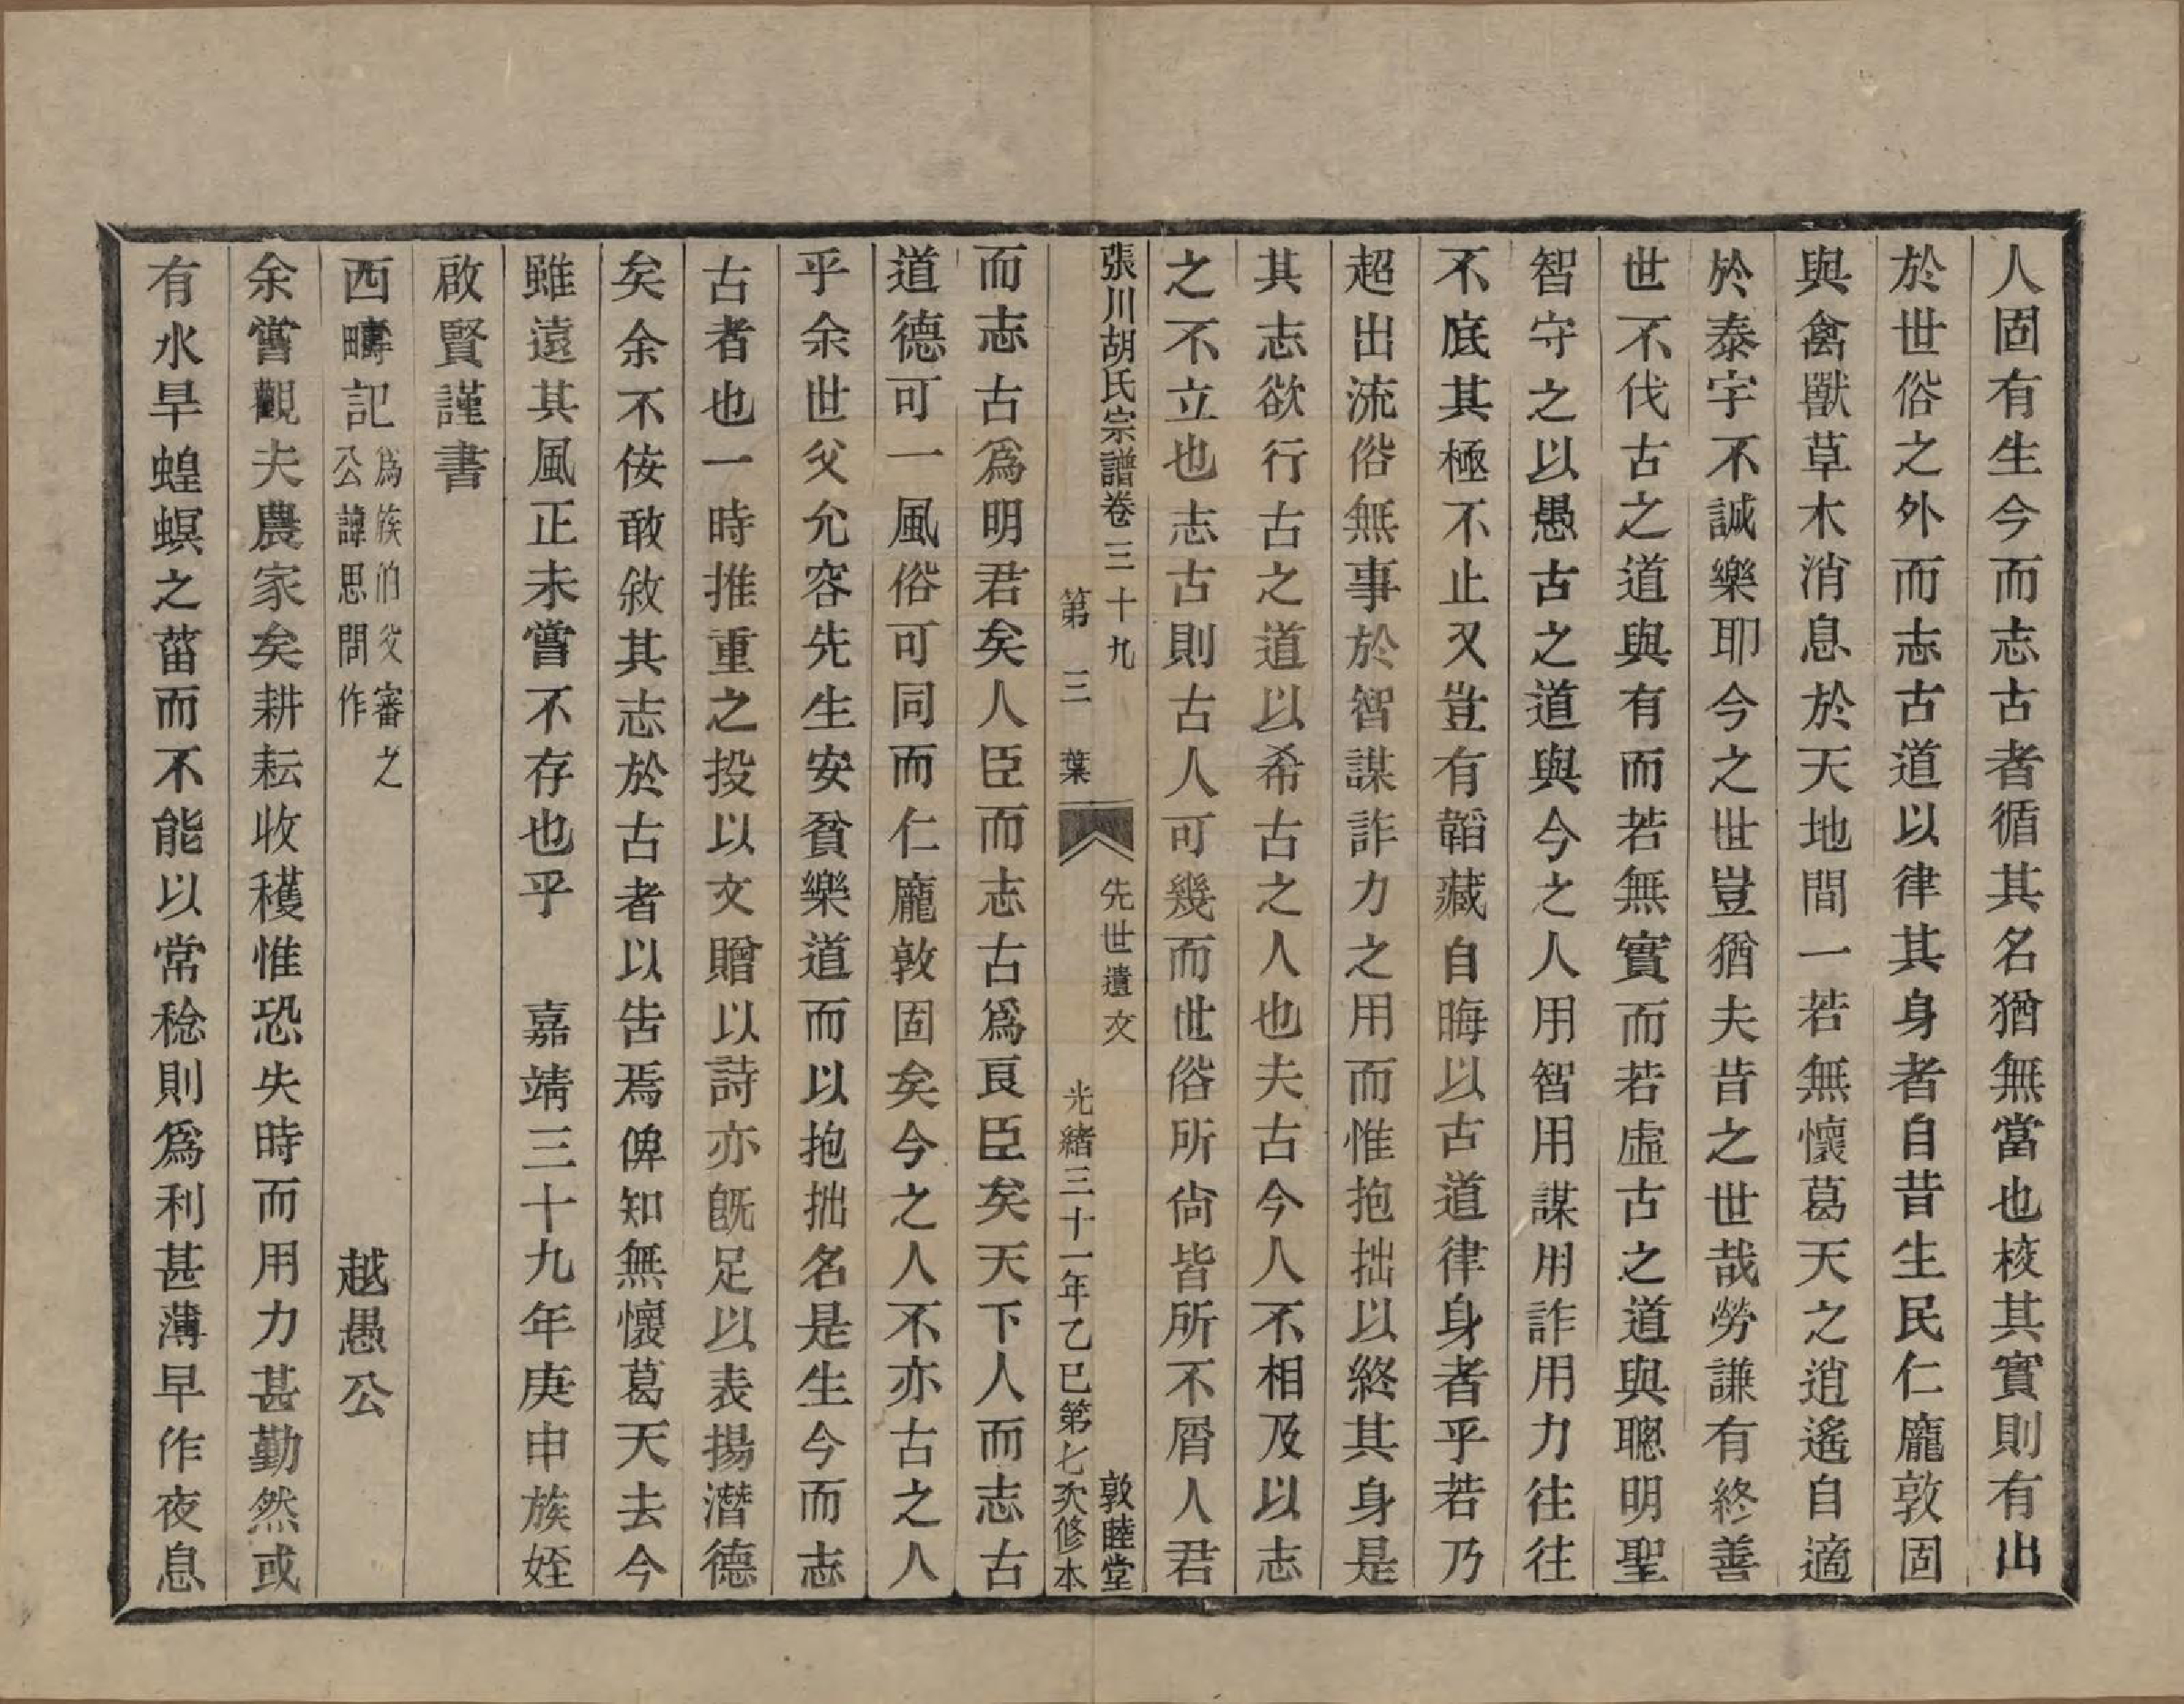 人固有生今而志古者循其名猶無當也核其實則有出
於世俗之外而志古道以律其身者自昔生民仁龐敦固
與禽獸草木消息於天地間一若無懷葛天之逍遙自適
於泰宇不誠樂耶今之世豈猶夫昔之世哉勞謙有終善
世不伐古之道與有而若無實而若虛古之道與聰明聖
智守之以愚古之道與今之人用智用謀用詐用力往往
不底其極不止又豈有韜藏自晦以古道律身者乎若乃
超出流俗無事於智謀詐力之用而惟抱拙以終其身是
其志欲行古之道以希古之人也夫古今人不相及以志
之不立也志古則古人可幾而世俗所尙皆所不屑人君
張川胡氏宗譜卷三十九 先世遺文 敦睦堂
第三葉 光緒三十一年乙巳第七次修本
而志古爲明君矣人臣而志古爲良臣矣天下人而志古
道德可一風俗可同而仁龐敦固矣今之人不亦古之人
乎余世父允容先生安貧樂道而以抱拙名是生今而志
古者也一時推重之投以文贈以詩亦旣足以表揚潛德
矣余不侫敢敘其志於古者以告焉俾知無懷葛天去今
雖遠其風正未嘗不存也乎 嘉靖三十九年庚申族姪
啟賢謹書
西疇記 爲族伯父審之公諱思問作 越愚公
余嘗觀夫農家矣耕耘收穫惟恐失時而用力甚勤然或
有水旱蝗螟之菑而不能以常稔則爲利甚薄早作夜息